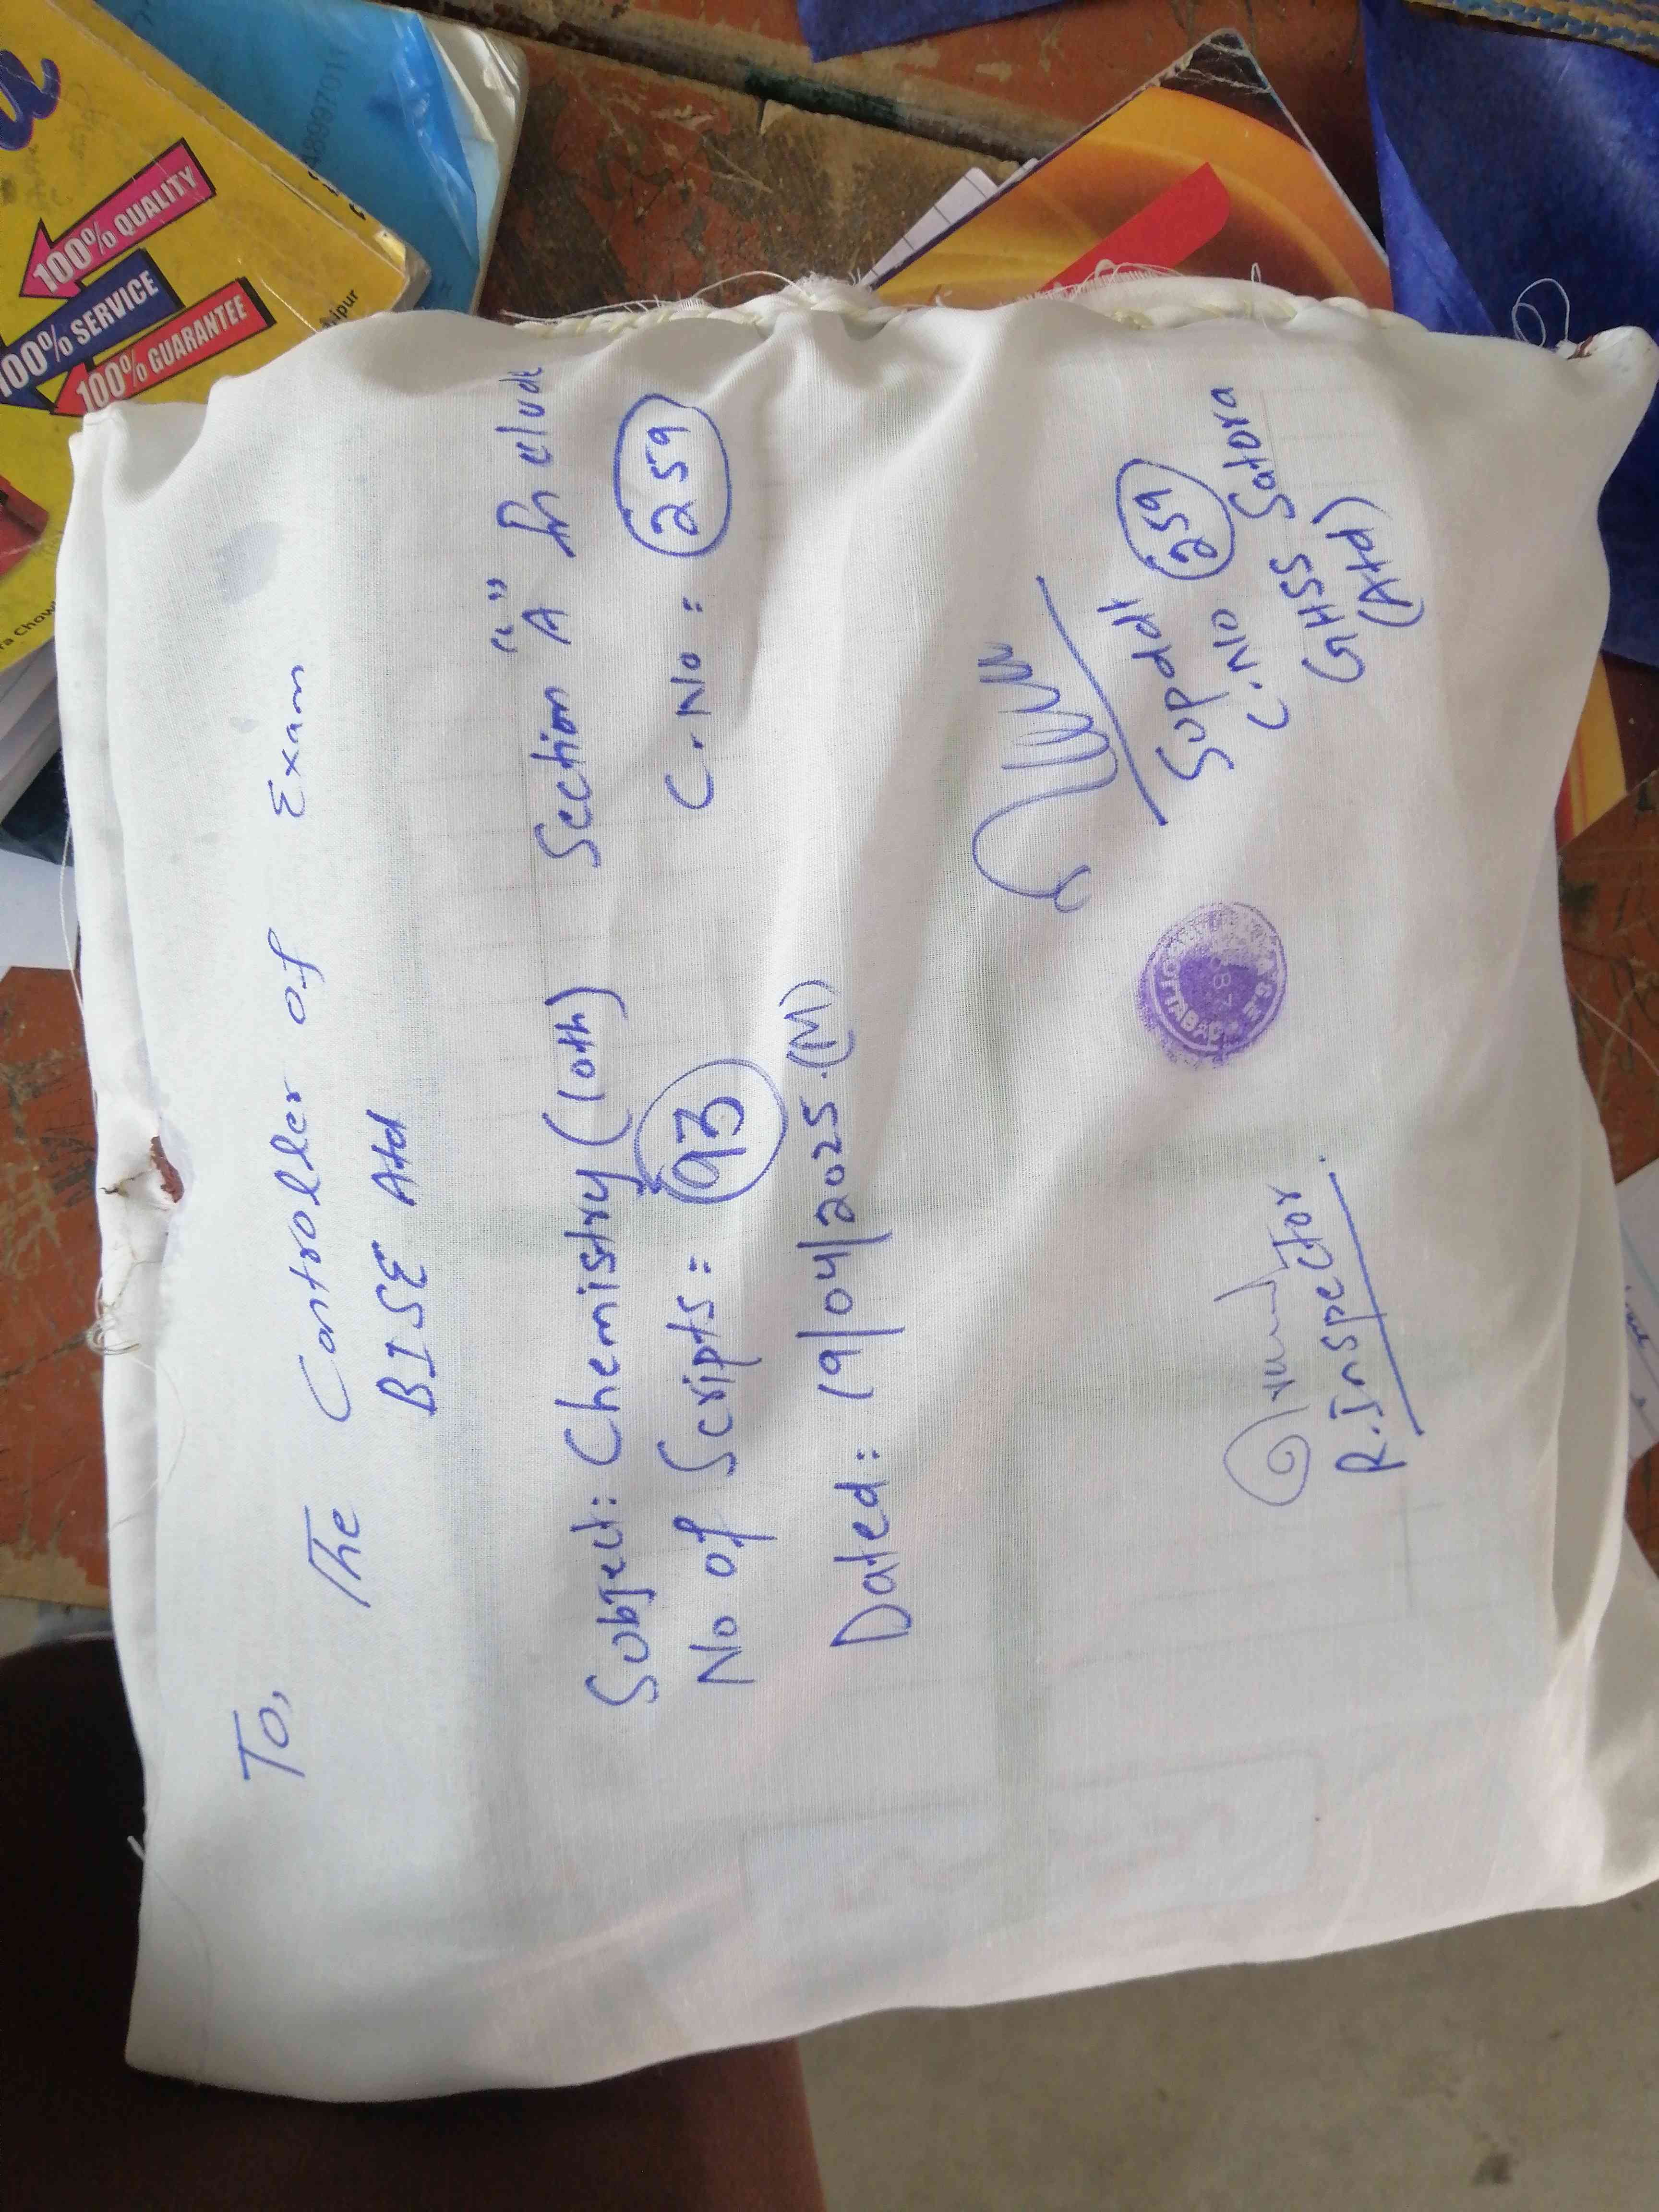 To,
The Controller of Exam
BISE Atd
Section "A" Include
Subject: Chemistry (10th)
C.No: 259
No of Scripts: 93
Dated: 19/04/2025.(M)
Supddt
C.No 259
GHSS Satora
(Atd)
R.Inspector
100% QUALITY
100% SERVICE
100% GUARANTEE